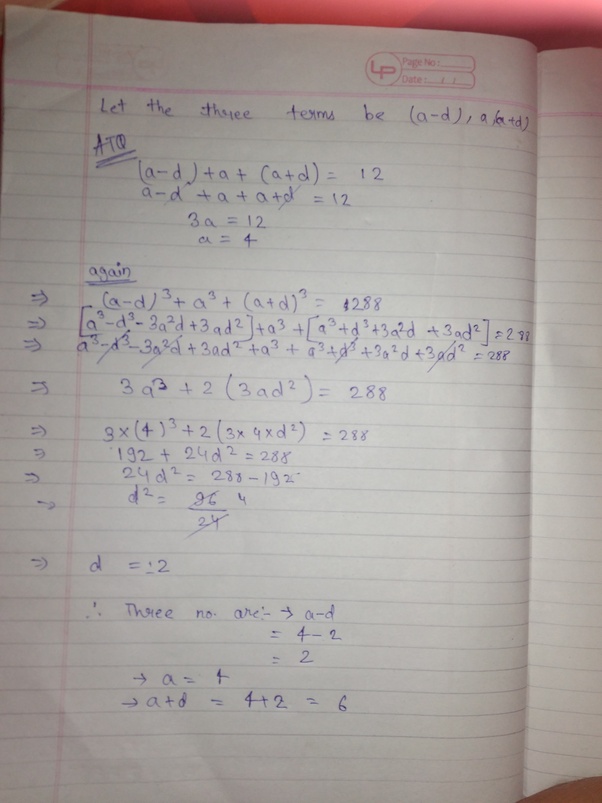 LP Page No:
Date: / /
Let the three terms be (a-d), a, (a+d)
ATQ
(a-d) + a + (a+d) = 12
a-d + a + a+d = 12
3a = 12
a = 4
again
⇒ (a-d)³ + a³ + (a+d)³ = 288
⇒ [a³-d³-3a²d+3ad²]+a³+[a³+d³+3a²d+3ad²]=288
⇒ a³-d³-3a²d+3ad²+a³+a³+d³+3a²d+3ad²=288
⇒ 3a³ + 2(3ad²) = 288
⇒ 3×(4)³+2(3×4×d²) = 288
⇒ 192 + 24d² = 288
⇒ 24d² = 288-192
→ d² = 96 4
24
⇒ d = ±2
∴ Three no. are:- → a-d
= 4-2
= 2
→ a = 4
→ a+d = 4+2 = 6